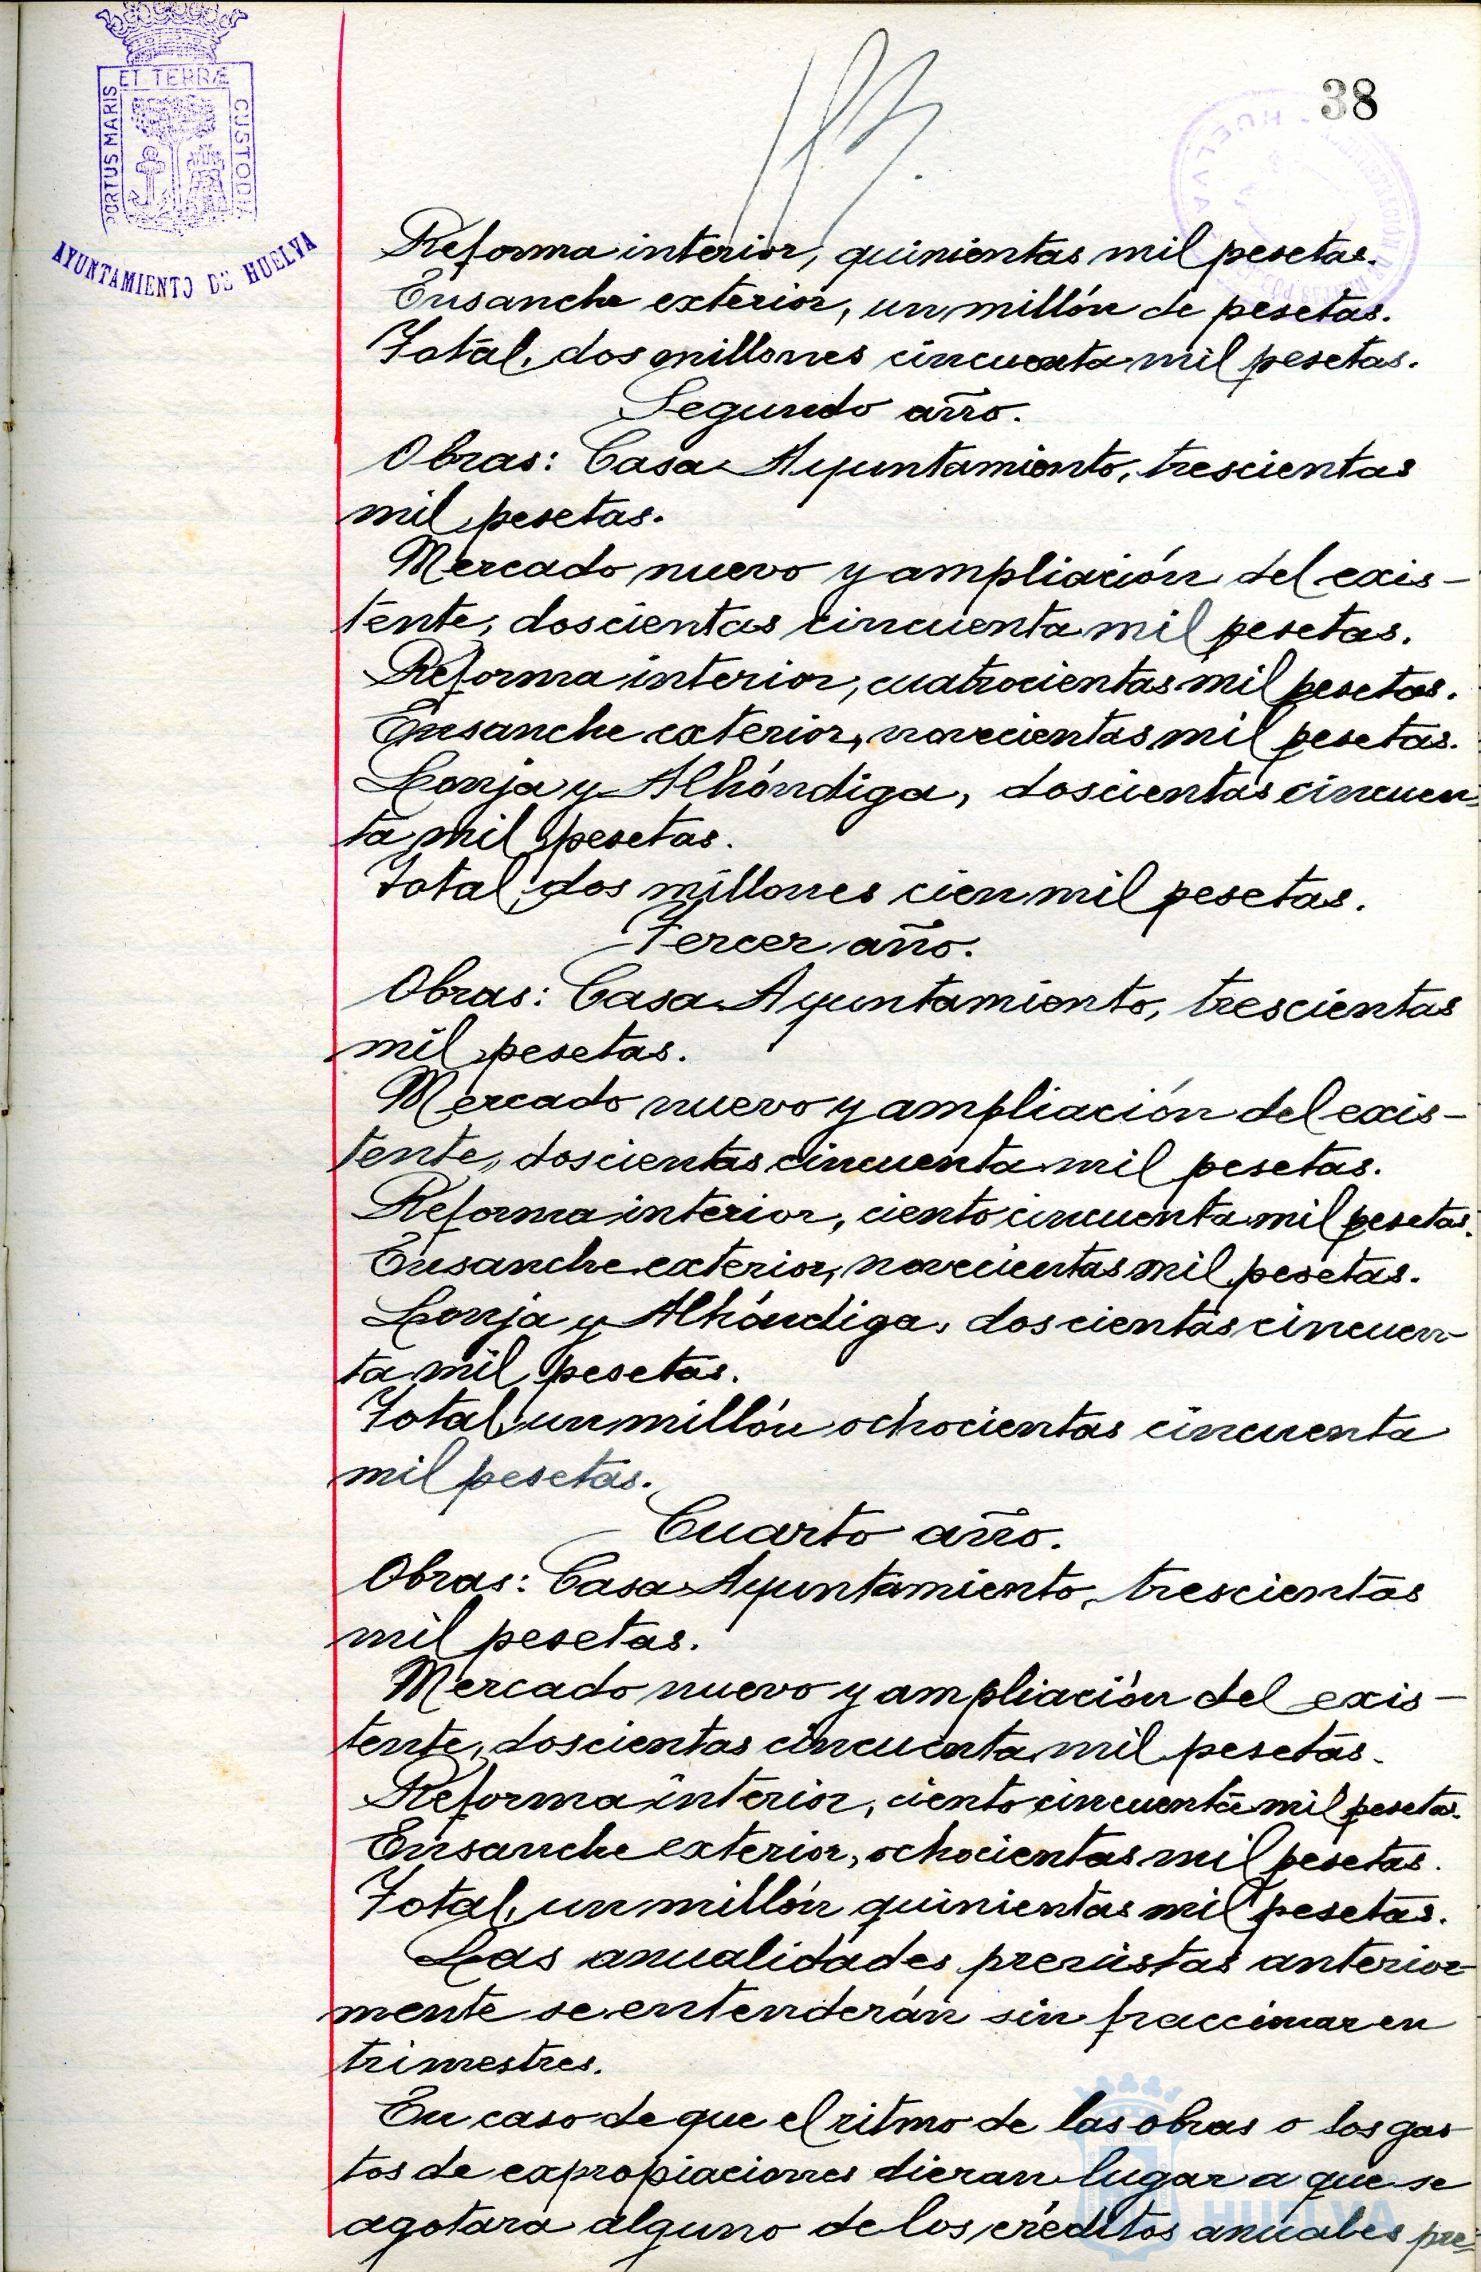 38
PORTUS MARIS ET TERRÆ CUSTODIA
AYUNTAMIENTO DE HUELVA
Reforma interior, quinientas mil pesetas.
Ensanche exterior, un millón de pesetas.
Total, dos millones cincuenta mil pesetas.
Segundo año.
Obras: Casa Ayuntamiento, trescientas
mil pesetas.
Mercado nuevo y ampliación del exis-
tente, doscientas cincuenta mil pesetas.
Reforma interior, cuatrocientas mil pesetas.
Ensanche exterior, novecientas mil pesetas.
Lonja y Alhóndiga, doscientas cincuen-
ta mil pesetas.
Total, dos millones cien mil pesetas.
Tercer año.
Obras: Casa Ayuntamiento, trescientas
mil pesetas.
Mercado nuevo y ampliación del exis-
tente, doscientas cincuenta mil pesetas.
Reforma interior, ciento cincuenta mil pesetas.
Ensanche exterior, novecientas mil pesetas.
Lonja y Alhóndiga, doscientas cincuen-
ta mil pesetas.
Total, un millón ochocientas cincuenta
mil pesetas.
Cuarto año.
Obras: Casa Ayuntamiento, trescientas
mil pesetas.
Mercado nuevo y ampliación del exis-
tente, doscientas cincuenta mil pesetas.
Reforma interior, ciento cincuenta mil pesetas.
Ensanche exterior, ochocientas mil pesetas.
Total, un millón quinientas mil pesetas.
Las anualidades previstas anterior-
mente se entenderán sin fraccionar en
trimestres.
En caso de que el ritmo de las obras o los gas-
tos de expropiaciones dieran lugar a que se
agotara alguno de los créditos anuales pre-
HUELVA